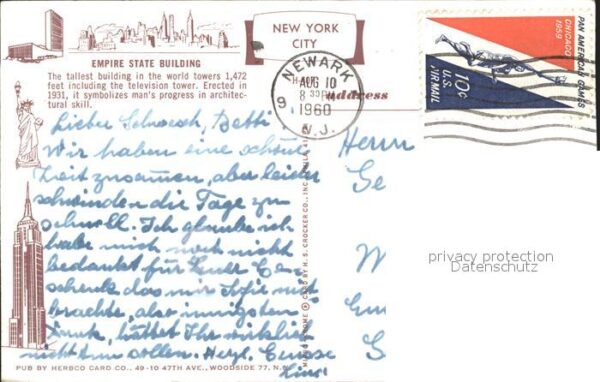 NEW YORK
CITY
EMPIRE STATE BUILDING
The tallest building in the world towers 1,472
feet including the television tower. Erected in
1931, it symbolizes man's progress in architec-
tural skill.
NEWARK
AUG 10
8 30 PM
1960
N.J.
Address
PAN AMERICAN GAMES
CHICAGO
1959
10¢
U.S.
AIR MAIL
Lieber Betti
Wir haben eine schöne
Zeit zusammen, aber leider
schwinden die Tage zu
schnell. Ich glaube ich
habe mich noch nicht
bedankt für Eure Ge-
schenk das mir
brachte, also innigsten
Dank, hättet Ihr wirklich
nicht tun sollen. Herzl. Grüsse
Herrn
Ge
W
G
privacy protection
Datenschutz
PUB BY HERBCO CARD CO., 49-10 47TH AVE., WOODSIDE 77, N.Y.